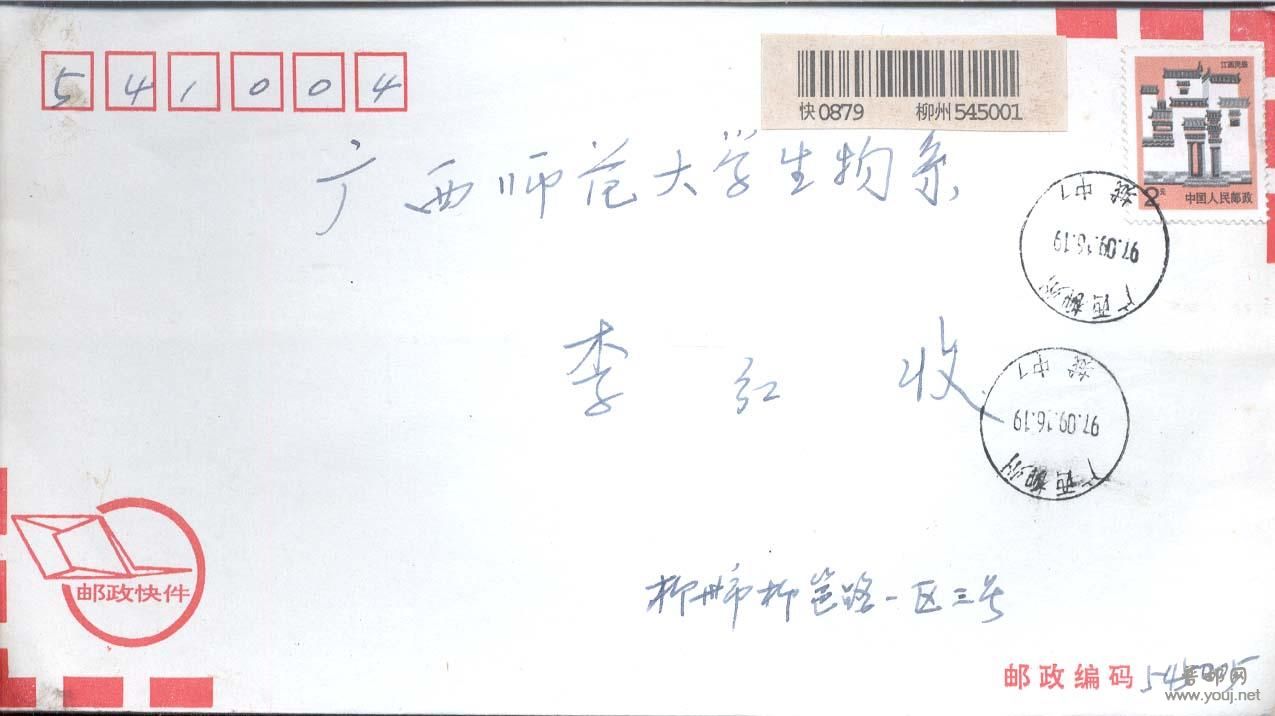 541004
快0879 柳州545001
江西民居
2元 中国人民邮政
广西师范大学生物系
97.09.16.19
广西柳州
李红收
97.09.16.19
广西柳州
邮政快件
柳州市柳邕路一区三号
邮政编码 545005
www.youj.net